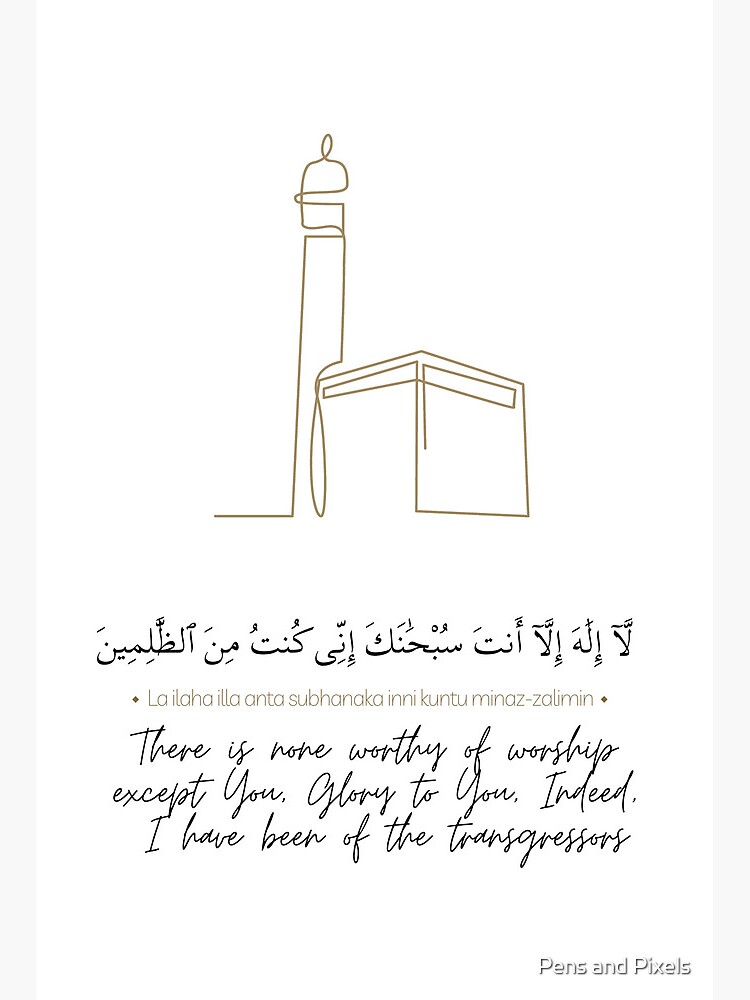 لَّآ إِلَٰهَ إِلَّآ أَنتَ سُبْحَٰنَكَ إِنِّى كُنتُ مِنَ ٱلظَّٰلِمِينَ
◆ La ilaha illa anta subhanaka inni kuntu minaz-zalimin ◆
There is none worthy of worship
except You, Glory to You, Indeed,
I have been of the transgressors
Pens and Pixels